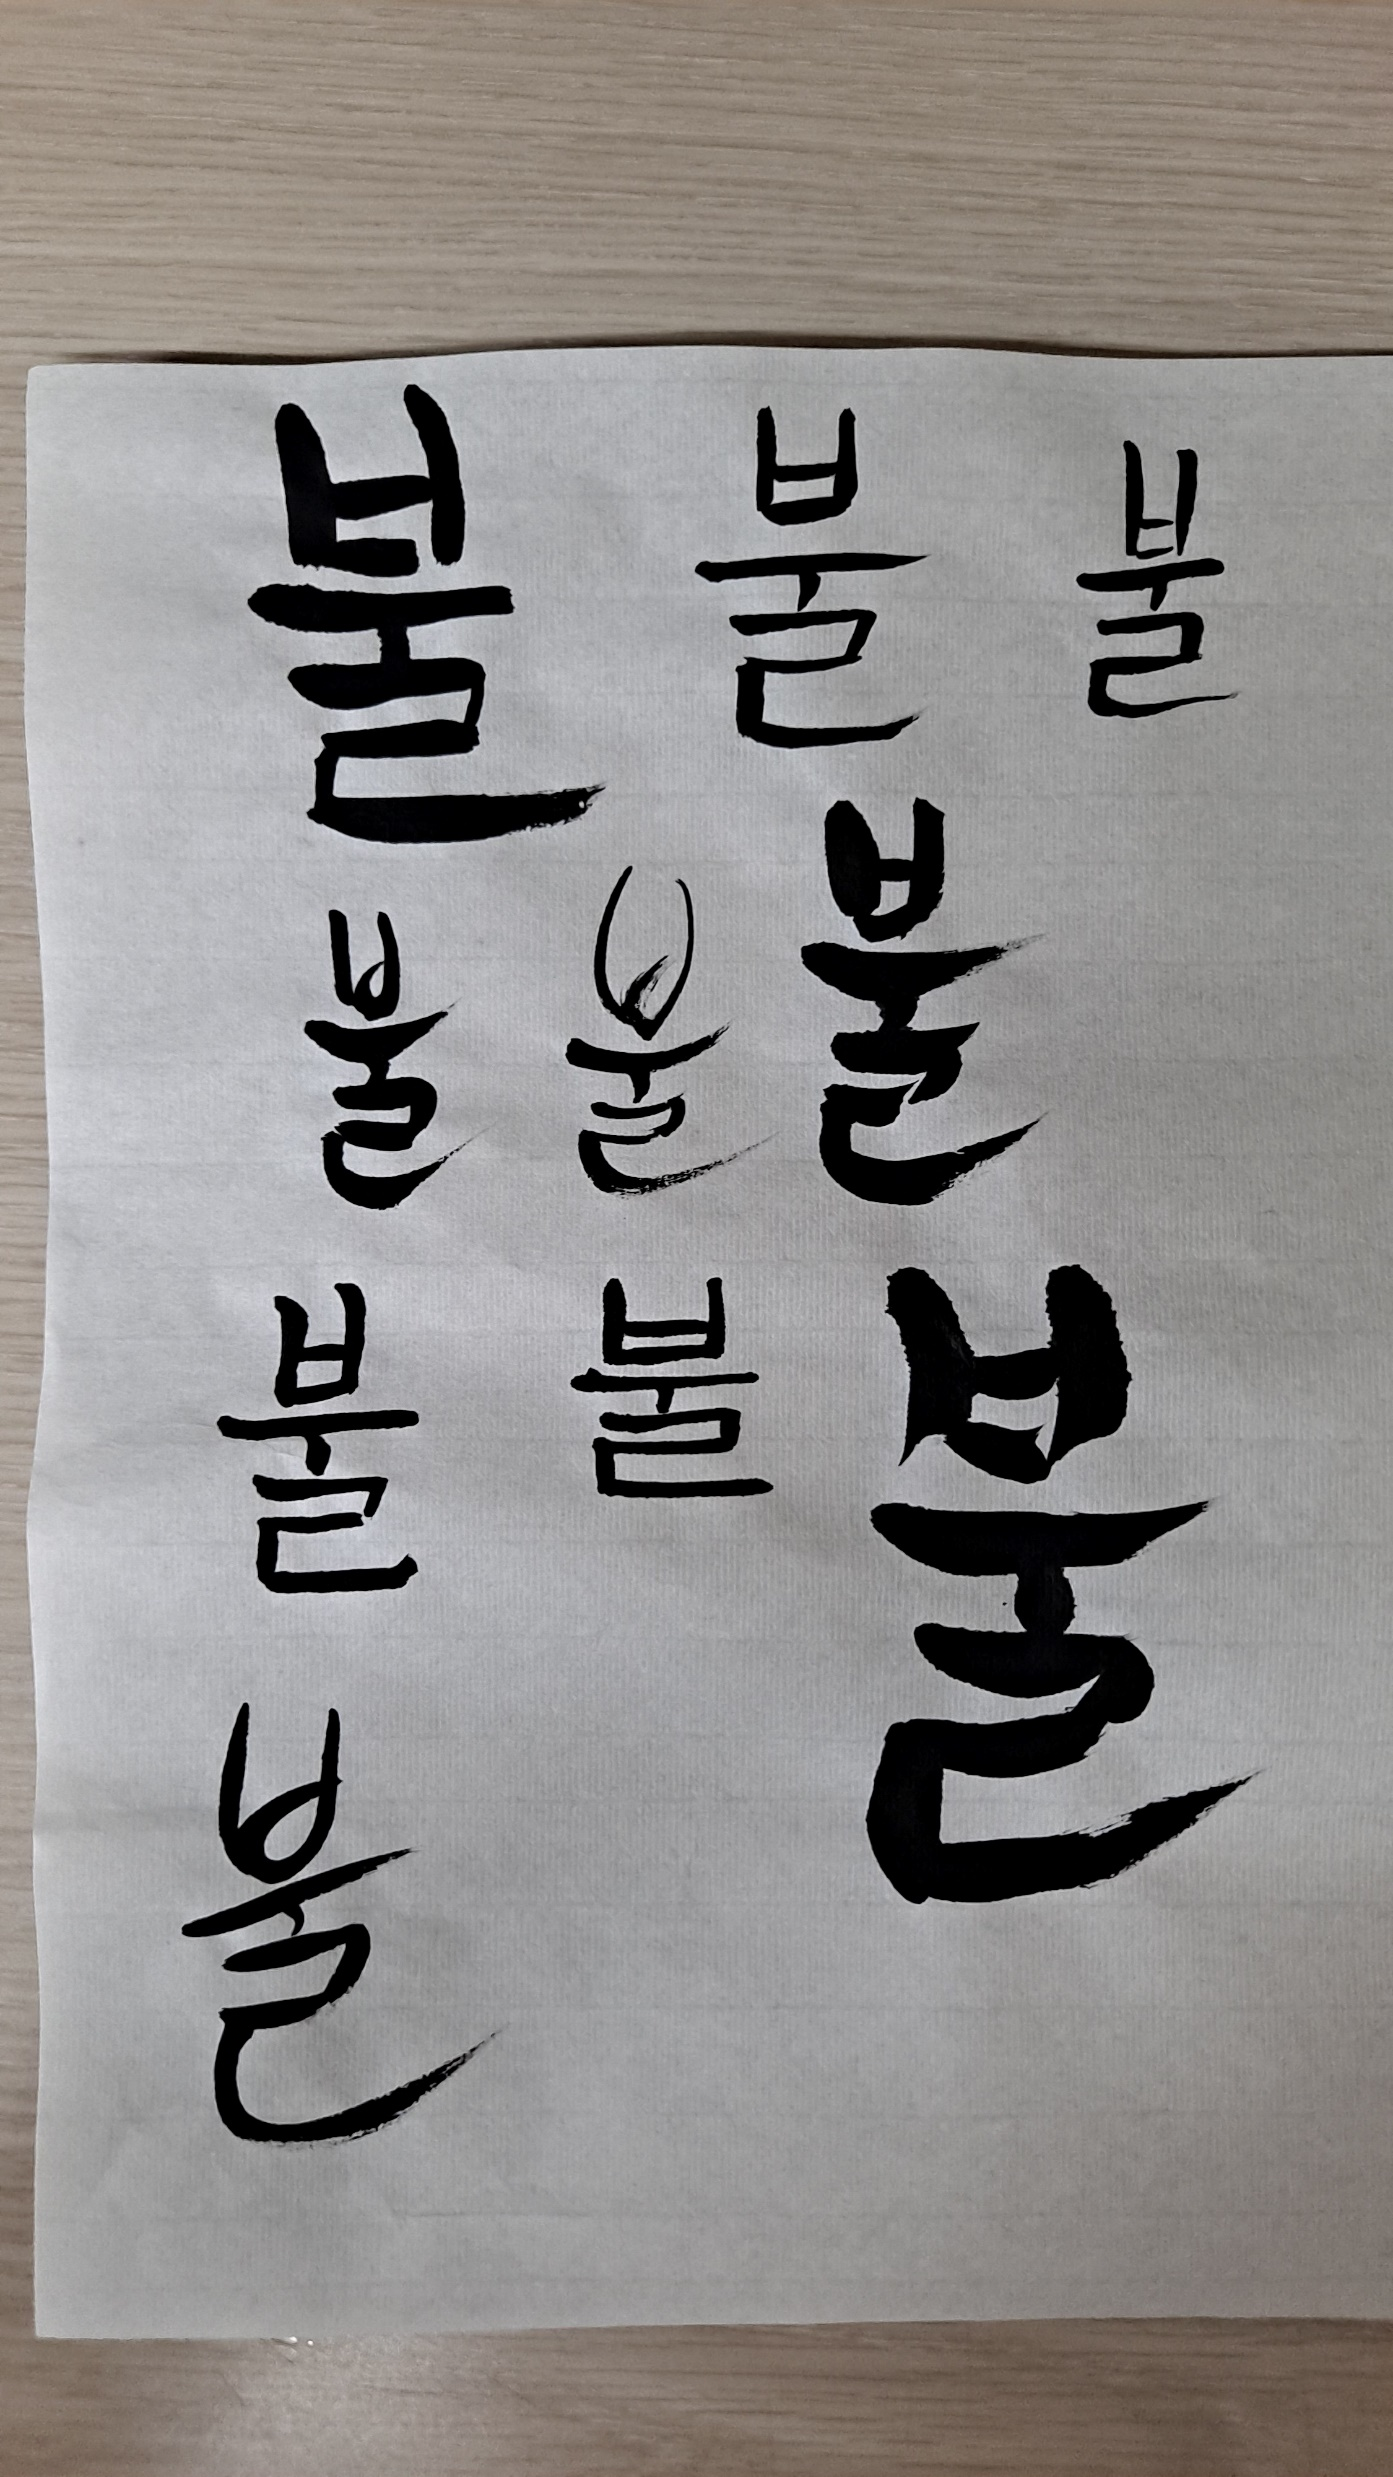 불 불 불
불 불 불
불 불 불
불